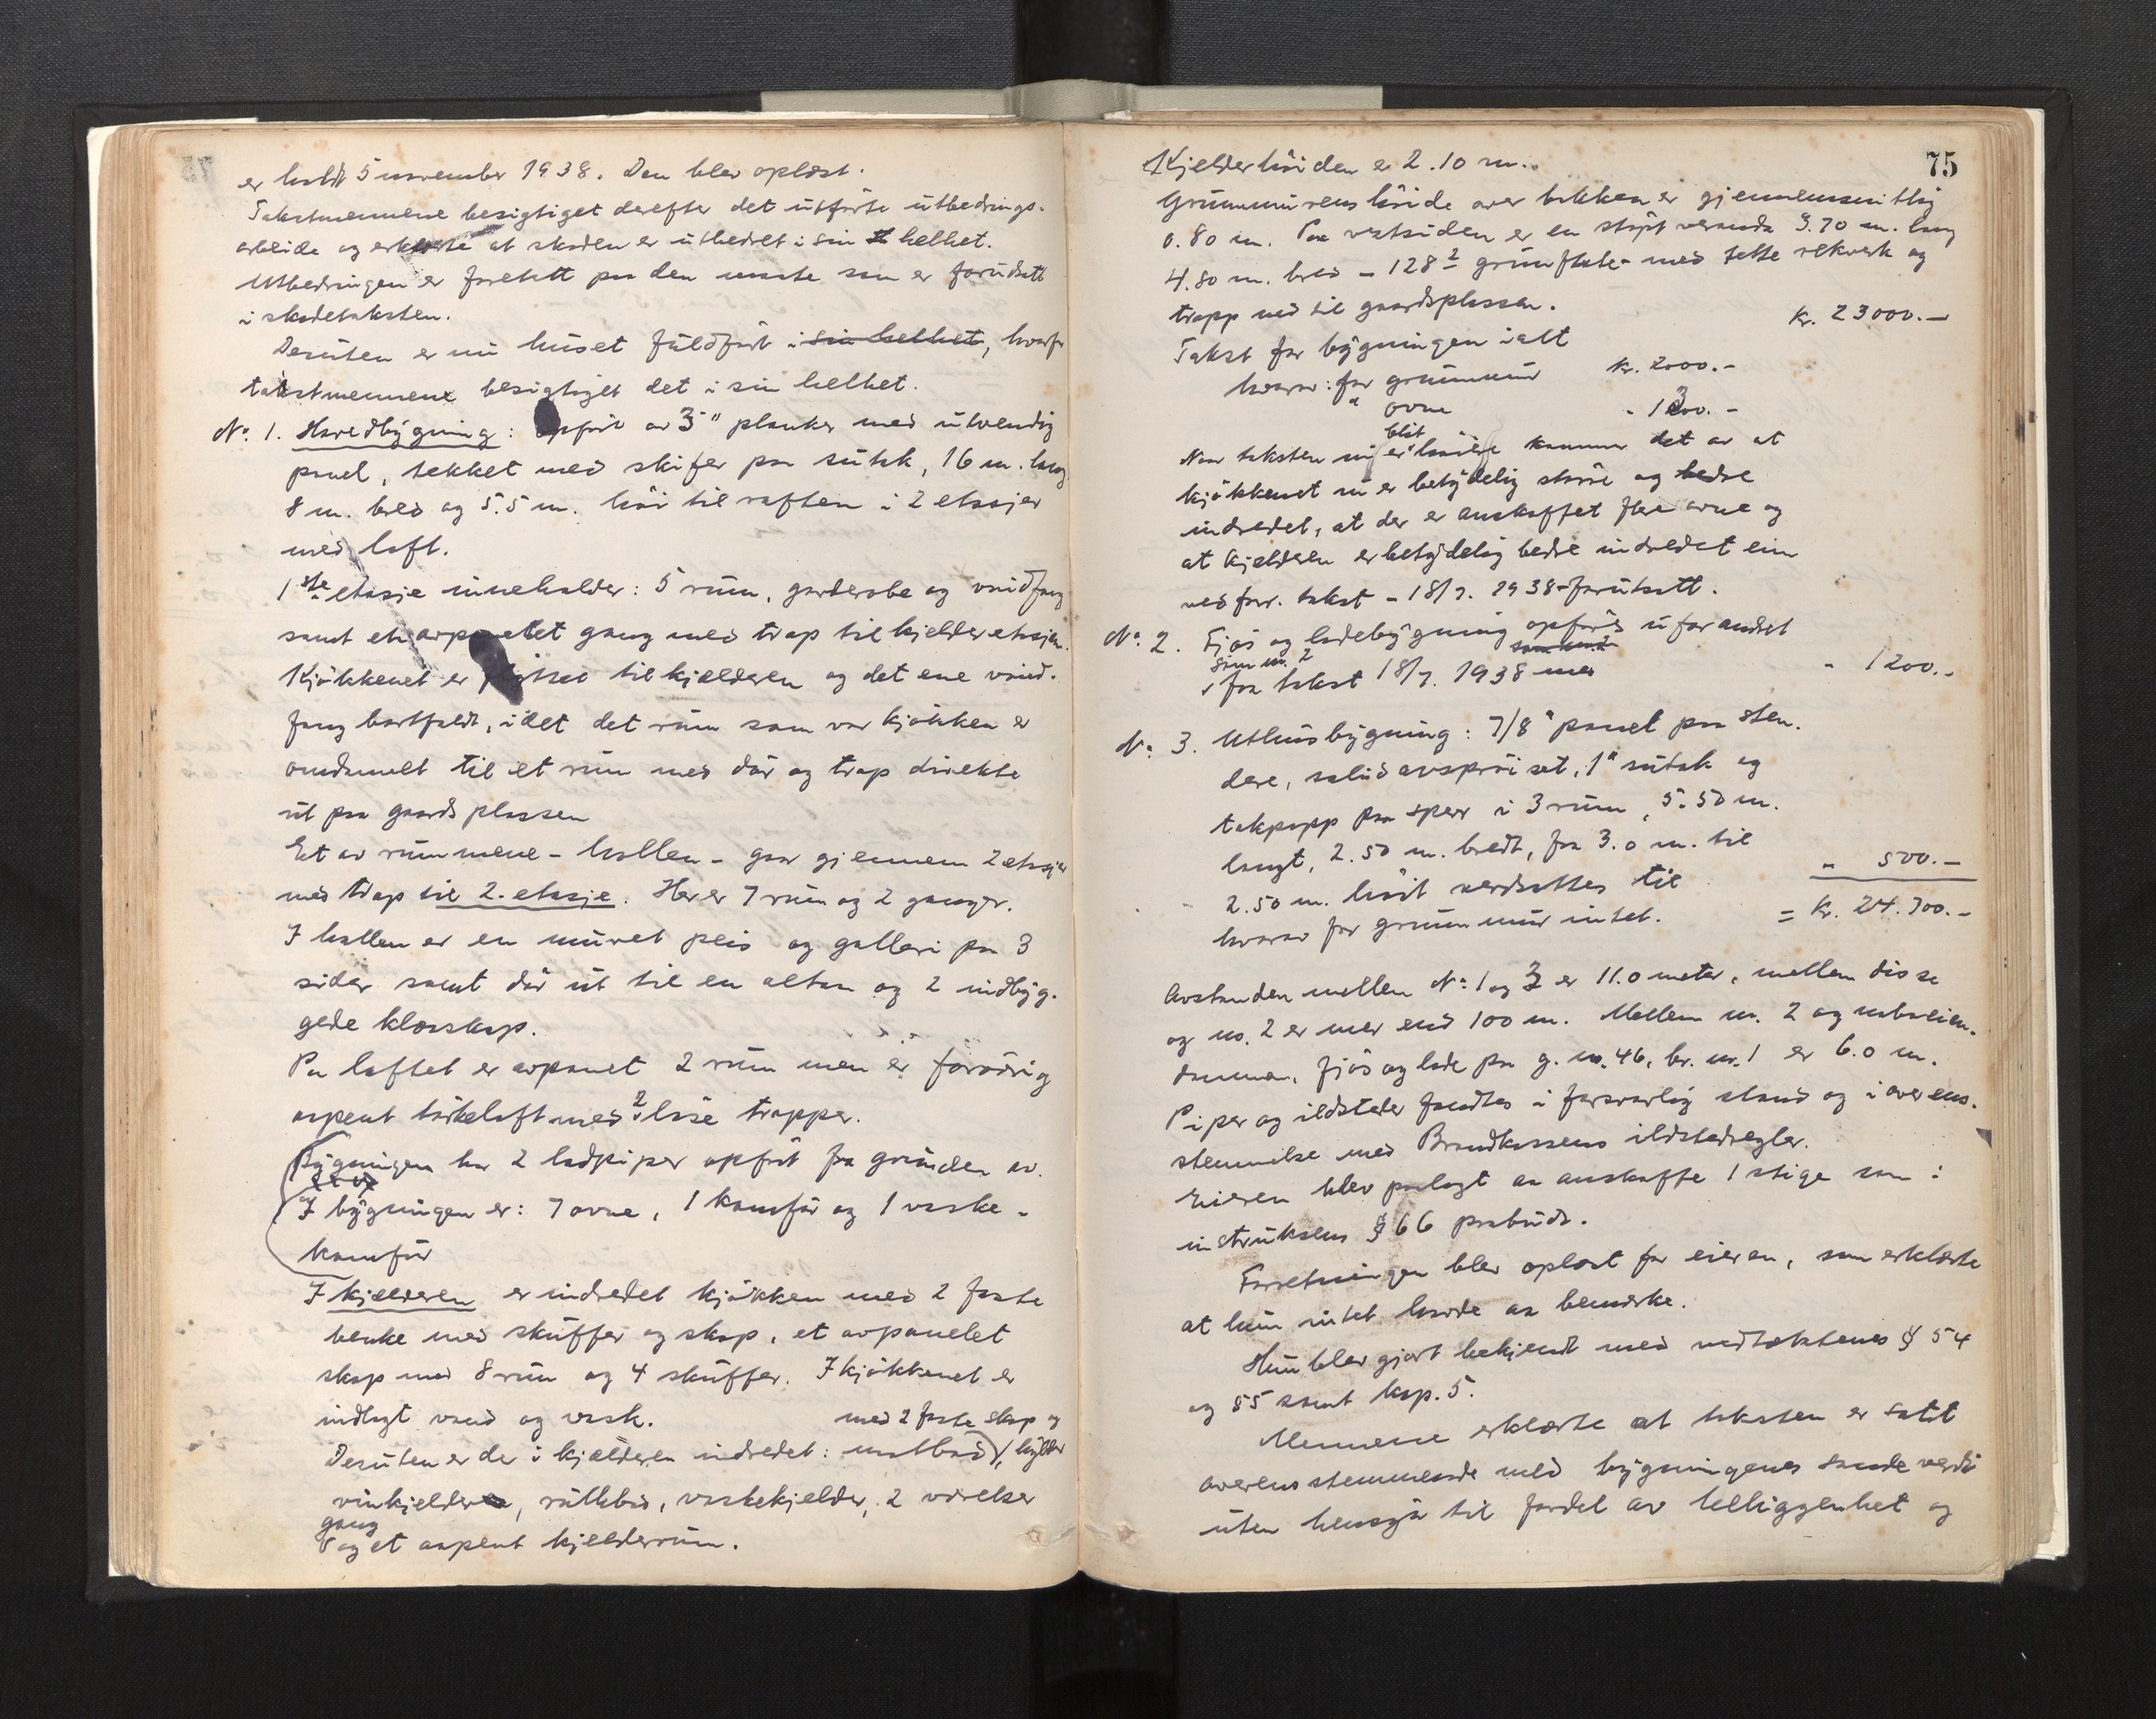 er holdt 5 november 1938. Den blev oplæst.
Takstmennene besigtiget derefter det utførte utbedrings-
arbeide og erklærte at skaden er utbedret i sin helhet.
Utbedringen er foretatt paa den maate som er forudsatt
i skadetaksten.
Desuten er nu huset fuldført i sin helhet, hvorfor
takstmennene besigtiget det i sin helhet.
No. 1. Hovedbygning: Opført av 3" planker med utvendig
panel, tekket med skifer paa sutak, 16 m. lang
8 m. bred og 5.5 m. höi til raften i 2 etasjer
med loft.
1ste etasje inneholder: 5 rum, garderobe og vindfang
samt et avpanelet gang med trap til kjelderetasjen.
Kjökkenet er flyttet til kjælderen og det ene vind-
fang bortfaldt, idet det rum som var kjökken er
omdannet til et rum med dör og trap direkte
ut paa gaardsplassen
Et av rummene - hallen - gaar gjennem 2 etasjer
med trap til 2. etasje. Her er 7 rum og 2 ganger.
I hallen er en muret peis og galleri paa 3
sider samt dör ut til en altan og 2 indbyg-
gede klæsskap.
Paa loftet er avpanet 2 rum men er forøvrig
aapent törkeloft med 2 löse trapper.
Bygningen har 2 ladpiper opfört fra grunden av.
I bygningen er: 7 ovne, 1 komfür og 1 vaske-
komfür
I kjælderen er indredet kjökken med 2 faste
benke med skuffer og skap, et avpanelet
skap med 8 rum og 4 skuffer. I kjökkenet er
indlagt vand og vask.
med 2 faste skap og
Desuten er der i kjælderen indredet: matbod, hylder
vinkjelder, rullebod, vaskekjelder, 2 værelser
gang
og et aapent kjelderrum.
75
Kjelderhöiden er 2.10 m.
Grunnmurens höide over bakken er gjennemsnitlig
0.80 m. Paa vestsiden er en støpt veranda 9.70 m. lang
4.80 m. bred - 128 2 grunnflate - med tette rekverk og
trapp ned til gaardsplassen.
Takst for bygningen ialt kr. 23000.-
hvorav: for grunnmur kr. 2000.-
" ovne - 1300.-
blit
Naar taksten nu er höiere kommer det av at
kjökkenet nu er betydelig större og bedre
indredet, at der er anskaffet flere ovne og
at kjælderen er betydelig bedre indredet enn
ved forr. takst - 18/7. 1938 - forutsatt.
No. 2. Fjös og ladebygning opføres uforandret
som nr. 2
fra takst 18/7. 1938 med - 1200.-
No. 3. Uthusbygning: 7/8" panel paa sten-
dere, solid avsprøiset, 1" sutak og
takpapp paa sperr i 3 rum, 5.50 m.
langt, 2.50 m. bredt, fra 3.0 m. til
2.50 m. höit verdsettes til " 500.-
hvorav for grunnmur intet. = Kr. 24.700.-
Avstanden mellem No. 1 og 3 er 11.0 meter, mellem disse
og no. 2 er mer end 100 m. Mellem nr. 2 og naboeien-
dommen, fjös og lade paa g. nr. 46, br. nr. 1 er 6.0 m.
Piper og ildsteder fandtes i forsvarlig stand og i overens-
stemmelse med Brandkassens ildstedregler.
Eieren blev paalagt aa anskaffe 1 stige som i
instruksens § 66 paabudt.
Forretningen blev oplæst for eieren, som erklærte
at hun intet havde aa bemerke.
Hun blev gjort bekjendt med vedtæktenes § 54
og 55 samt kap. 5.
Mennene erklærte at taksten er satt
overensstemmende med bygningenes sande verdi
uten hensyn til fordel av beliggenhet og